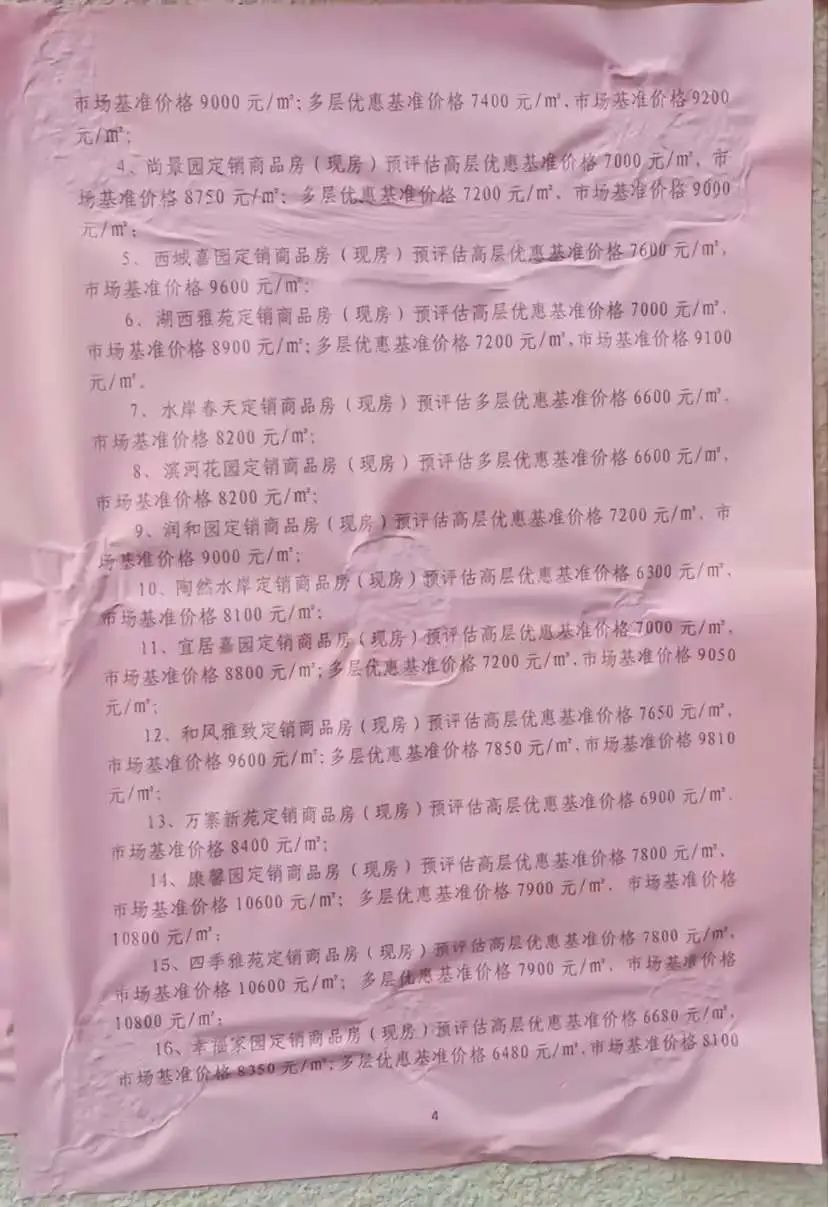 市场基准价格 9000 元/㎡;多层优惠基准价格 7400 元/㎡、市场基准价格 9200
元/㎡;
4、尚景园定销商品房（现房）预评估高层优惠基准价格 7000 元/㎡、市
场基准价格 8750 元/㎡; 多层优惠基准价格 7200 元/㎡、市场基准价格 9000
元/㎡;
5、西城嘉园定销商品房（现房）预评估高层优惠基准价格 7600 元/㎡、
市场基准价格 9600 元/㎡;
6、湖西雅苑定销商品房（现房）预评估高层优惠基准价格 7000 元/㎡、
市场基准价格 8900 元/㎡;多层优惠基准价格 7200 元/㎡、市场基准价格 9100
元/㎡。
7、水岸春天定销商品房（现房）预评估多层优惠基准价格 6600 元/㎡、
市场基准价格 8200 元/㎡;
8、滨河花园定销商品房（现房）预评估多层优惠基准价格 6600 元/㎡、
市场基准价格 8200 元/㎡;
9、润和园定销商品房（现房）预评估高层优惠基准价格 7200 元/㎡、市
场基准价格 9000 元/㎡;
10、陶然水岸定销商品房（现房）预评估高层优惠基准价格 6300 元/㎡、
市场基准价格 8100 元/㎡;
11、宜居嘉园定销商品房（现房）预评估高层优惠基准价格 7000 元/㎡、
市场基准价格 8800 元/㎡;多层优惠基准价格 7200 元/㎡、市场基准价格 9050
元/㎡;
12、和风雅致定销商品房（现房）预评估高层优惠基准价格 7650 元/㎡、
市场基准价格 9600 元/㎡;多层优惠基准价格 7850 元/㎡、市场基准价格 9810
元/㎡;
13、万寨新苑定销商品房（现房）预评估高层优惠基准价格 6900 元/㎡、
市场基准价格 8400 元/㎡;
14、康馨园定销商品房（现房）预评估高层优惠基准价格 7800 元/㎡、
市场基准价格 10600 元/㎡; 多层优惠基准价格 7900 元/㎡、市场基准价格
10800 元/㎡;
15、四季雅苑定销商品房（现房）预评估高层优惠基准价格 7800 元/㎡、
市场基准价格 10600 元/㎡; 多层优惠基准价格 7900 元/㎡、市场基准价格
10800 元/㎡;
16、幸福家园定销商品房（现房）预评估高层优惠基准价格 6680 元/㎡、
市场基准价格 8350 元/㎡;多层优惠基准价格 6480 元/㎡、市场基准价格 8100
4